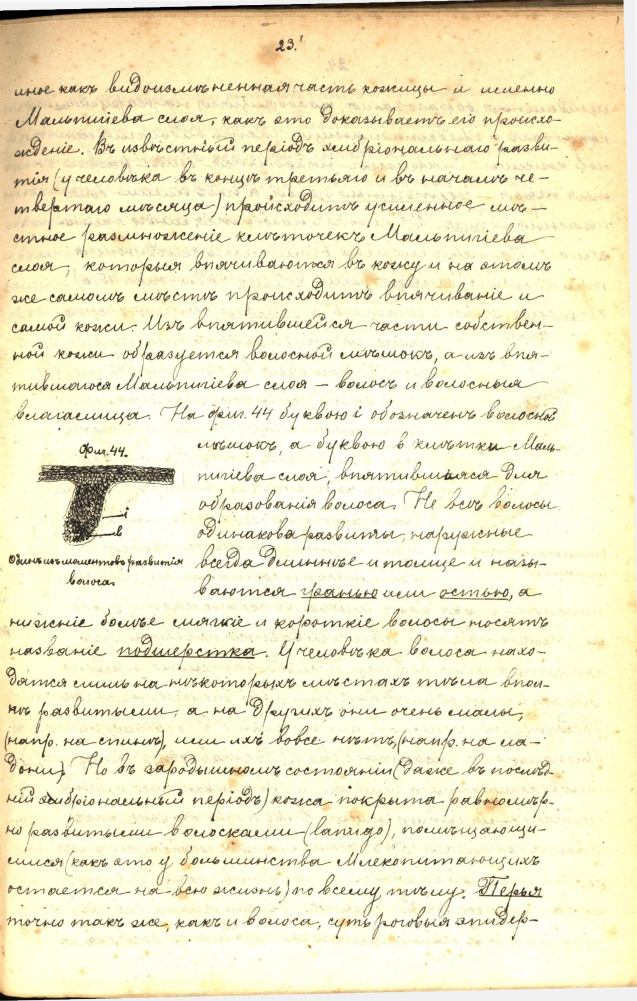 23.
мное какъ видоизмѣненная часть кожицы и именно
Мальпигіева слоя, какъ это доказываетъ его происхо-
жденіе. Въ извѣстный періодъ эмбріональнаго разви-
тія (у человѣка въ концѣ третьяго и въ началѣ че-
твертаго мѣсяца) происходитъ усиленное мѣ-
стное размноженіе клѣточекъ Мальпигіева
слоя, которыя впячиваются въ кожу и на этомъ
же самомъ мѣстѣ происходитъ впячиваніе и
самой кожи. Изъ впятившейся части собствен-
ной кожи образуется волосной мѣшокъ, а изъ впя-
тившагося Мальпигіева слоя – волосъ и волосныя
влагалища. На фиг. 44 буквою i обозначенъ волосной
мѣшокъ, а буквою в клѣтки Маль-
пигіева слоя, впятившіяся для
образованія волоса. Не всѣ волосы
одинаково развиты, наружные
всегда длиннѣе и толще и назы-
ваются гранью или остью, а
Фиг. 44.
i
в
Одинъ изъ моментовъ развитія
волоса.
нижніе болѣе мягкіе и короткіе волосы носятъ
названіе подшерстка. У человѣка волоса нахо-
дятся лишь на нѣкоторыхъ мѣстахъ тѣла впол-
нѣ развитыми, а на другихъ они очень малы,
(напр. на спинѣ), или ихъ вовсе нѣтъ, (напр. на ла-
дони). Но въ зародышномъ состояніи (даже въ послѣд-
ній эмбріональный періодъ) кожа покрыта равномѣр-
но развитыми волосками (lanugo), помѣщающи-
мися (какъ это у большинства Млекопитающихъ
остается на всю жизнь) по всему тѣлу. Перья
точно такъ же, какъ и волоса, суть роговыя эпидер-